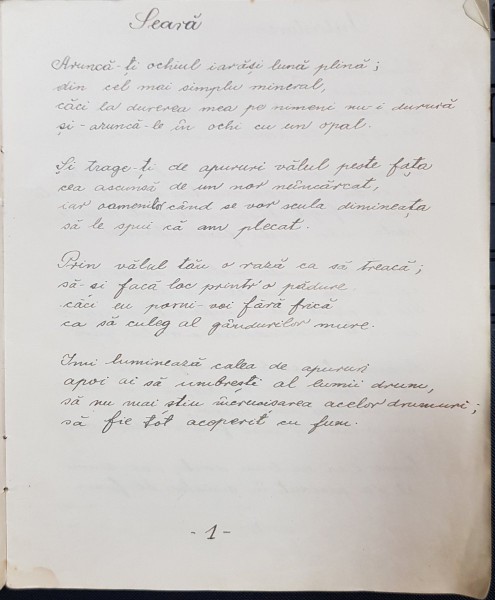 Seară
Aruncă-ți ochiul iarăși lună plină;
din cel mai simplu mineral,
căci la durerea mea pe nimeni nu-i
și-aruncă-le în ochi cu un opal.
Și trage-ți de apururi vălul peste fața
cea ascunsă de un nor neîncărcat,
iar oamenilor când se vor scula dimineața
să le spui că am plecat.
Prin vălul tău o rază ca să treacă;
să-și facă loc printr'o pădure
căci eu porni-voi fără frică
ca să culeg al gândurilor mure.
Imi luminează calea de apururi
apoi ai să umbrești al lumii drum,
să nu mai știu încrucisarea acelor drumuri;
să fie tot acoperit cu fum.
- 1 -